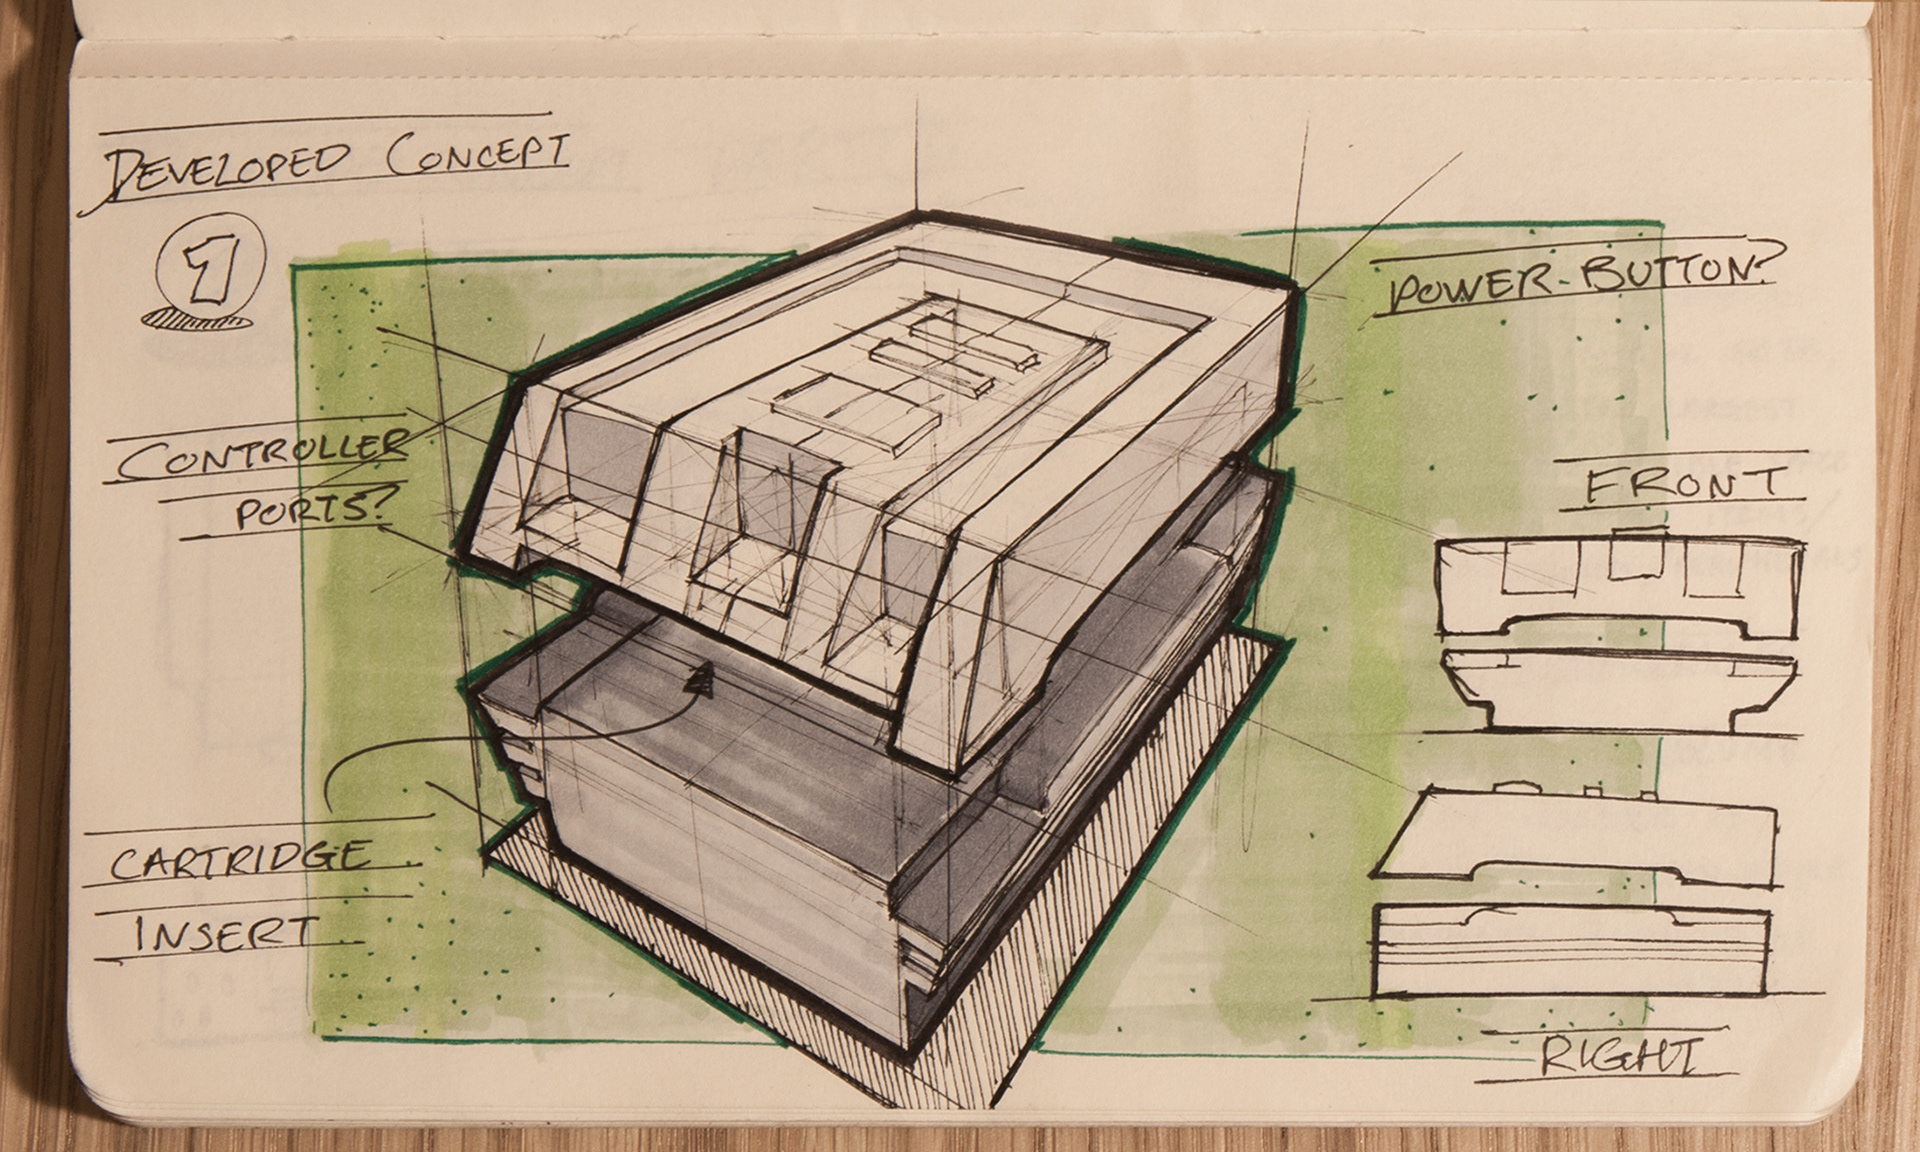 DEVELOPED CONCEPT
1
POWER-BUTTON?
CONTROLLER
PORTS?
FRONT
CARTRIDGE
INSERT
RIGHT